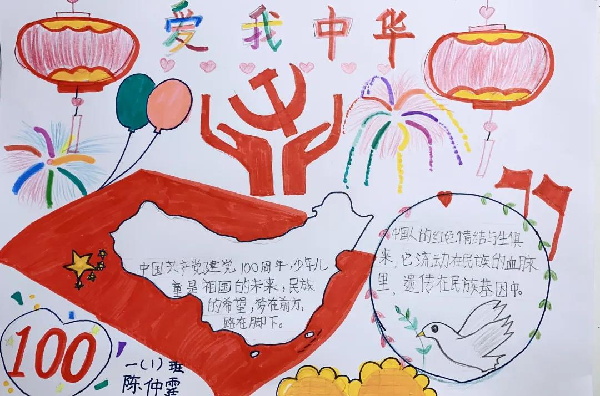 爱我中华
中国共产党建党100周年,少年儿
童是祖国的未来,民族
的希望,梦在前方,
路在脚下。
中国人的红色情结与生俱
来,它流动在民族的血脉
里,遗传在民族基因中。
100
一(1)班
陈仲霏